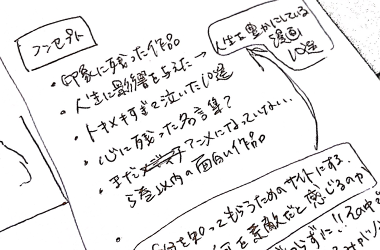 コンセプト
・印象に残った作品
・人生に影響を与えた→
人生を豊かにしている
漫画
10選
・トキメキすぎて泣いた10選
・心に残った名言集?
・まだアニメになっていない..
5巻以内の面白い作品
知ってもらうためのサイトにする。
を素敵だと感じるのか
らずに!!